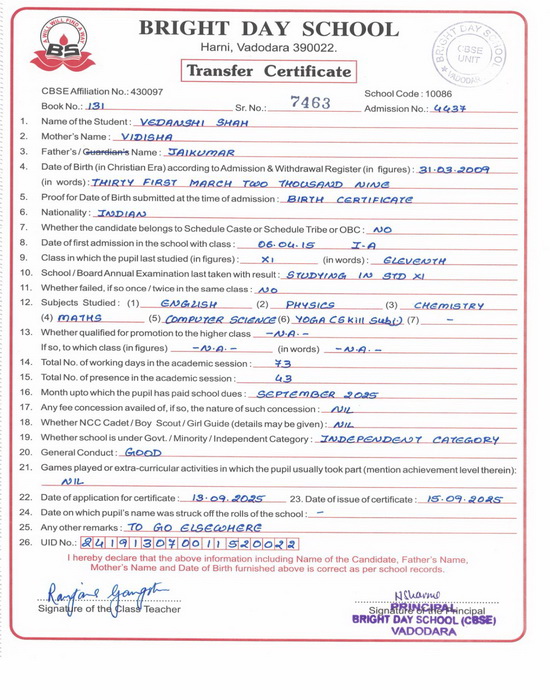 A WILL WILL FIND A WAY
BS
BRIGHT DAY SCHOOL
Harni, Vadodara 390022.
Transfer Certificate
BRIGHT DAY SCHOOL
CBSE
UNIT
VADODARA
CBSE Affiliation No.: 430097 School Code : 10086
Book No.: 131 Sr. No.: 7463 Admission No.: 4437
1. Name of the Student : VEDANSHI SHAH
2. Mother's Name : VIDISHA
3. Father's / Guardian's Name : JAIKUMAR
4. Date of Birth (in Christian Era) according to Admission & Withdrawal Register (in figures) : 31.03.2009
(in words) : THIRTY FIRST MARCH TWO THOUSAND NINE
5. Proof for Date of Birth submitted at the time of admission : BIRTH CERTIFICATE
6. Nationality : INDIAN
7. Whether the candidate belongs to Schedule Caste or Schedule Tribe or OBC : NO
8. Date of first admission in the school with class : 06.04.15 I-A
9. Class in which the pupil last studied (in figures) : XI (in words) : ELEVENTH
10. School / Board Annual Examination last taken with result : STUDYING IN STD XI
11. Whether failed, if so once / twice in the same class : NO
12. Subjects Studied : (1) ENGLISH (2) PHYSICS (3) CHEMISTRY
(4) MATHS (5) COMPUTER SCIENCE (6) YOGA (Skill Subj.) (7) -
13. Whether qualified for promotion to the higher class -N.A.-
If so, to which class (in figures) -N.A.- (in words) -N.A.-
14. Total No. of working days in the academic session : 73
15. Total No. of presence in the academic session : 43
16. Month upto which the pupil has paid school dues : SEPTEMBER 2025
17. Any fee concession availed of, if so, the nature of such concession : NIL
18. Whether NCC Cadet / Boy Scout / Girl Guide (details may be given) : NIL
19. Whether school is under Govt. / Minority / Independent Category : INDEPENDENT CATEGORY
20. General Conduct : GOOD
21. Games played or extra-curricular activities in which the pupil usually took part (mention achievement level therein):
NIL
22. Date of application for certificate : 13.09.2025 23. Date of issue of certificate : 15.09.2025
24. Date on which pupil's name was struck off the rolls of the school : -
25. Any other remarks : TO GO ELSEWHERE
26. UID No.: 241913070011520022
I hereby declare that the above information including Name of the Candidate, Father's Name,
Mother's Name and Date of Birth furnished above is correct as per school records.
Signature of the Class Teacher Signature of the Principal
PRINCIPAL
BRIGHT DAY SCHOOL (CBSE)
VADODARA